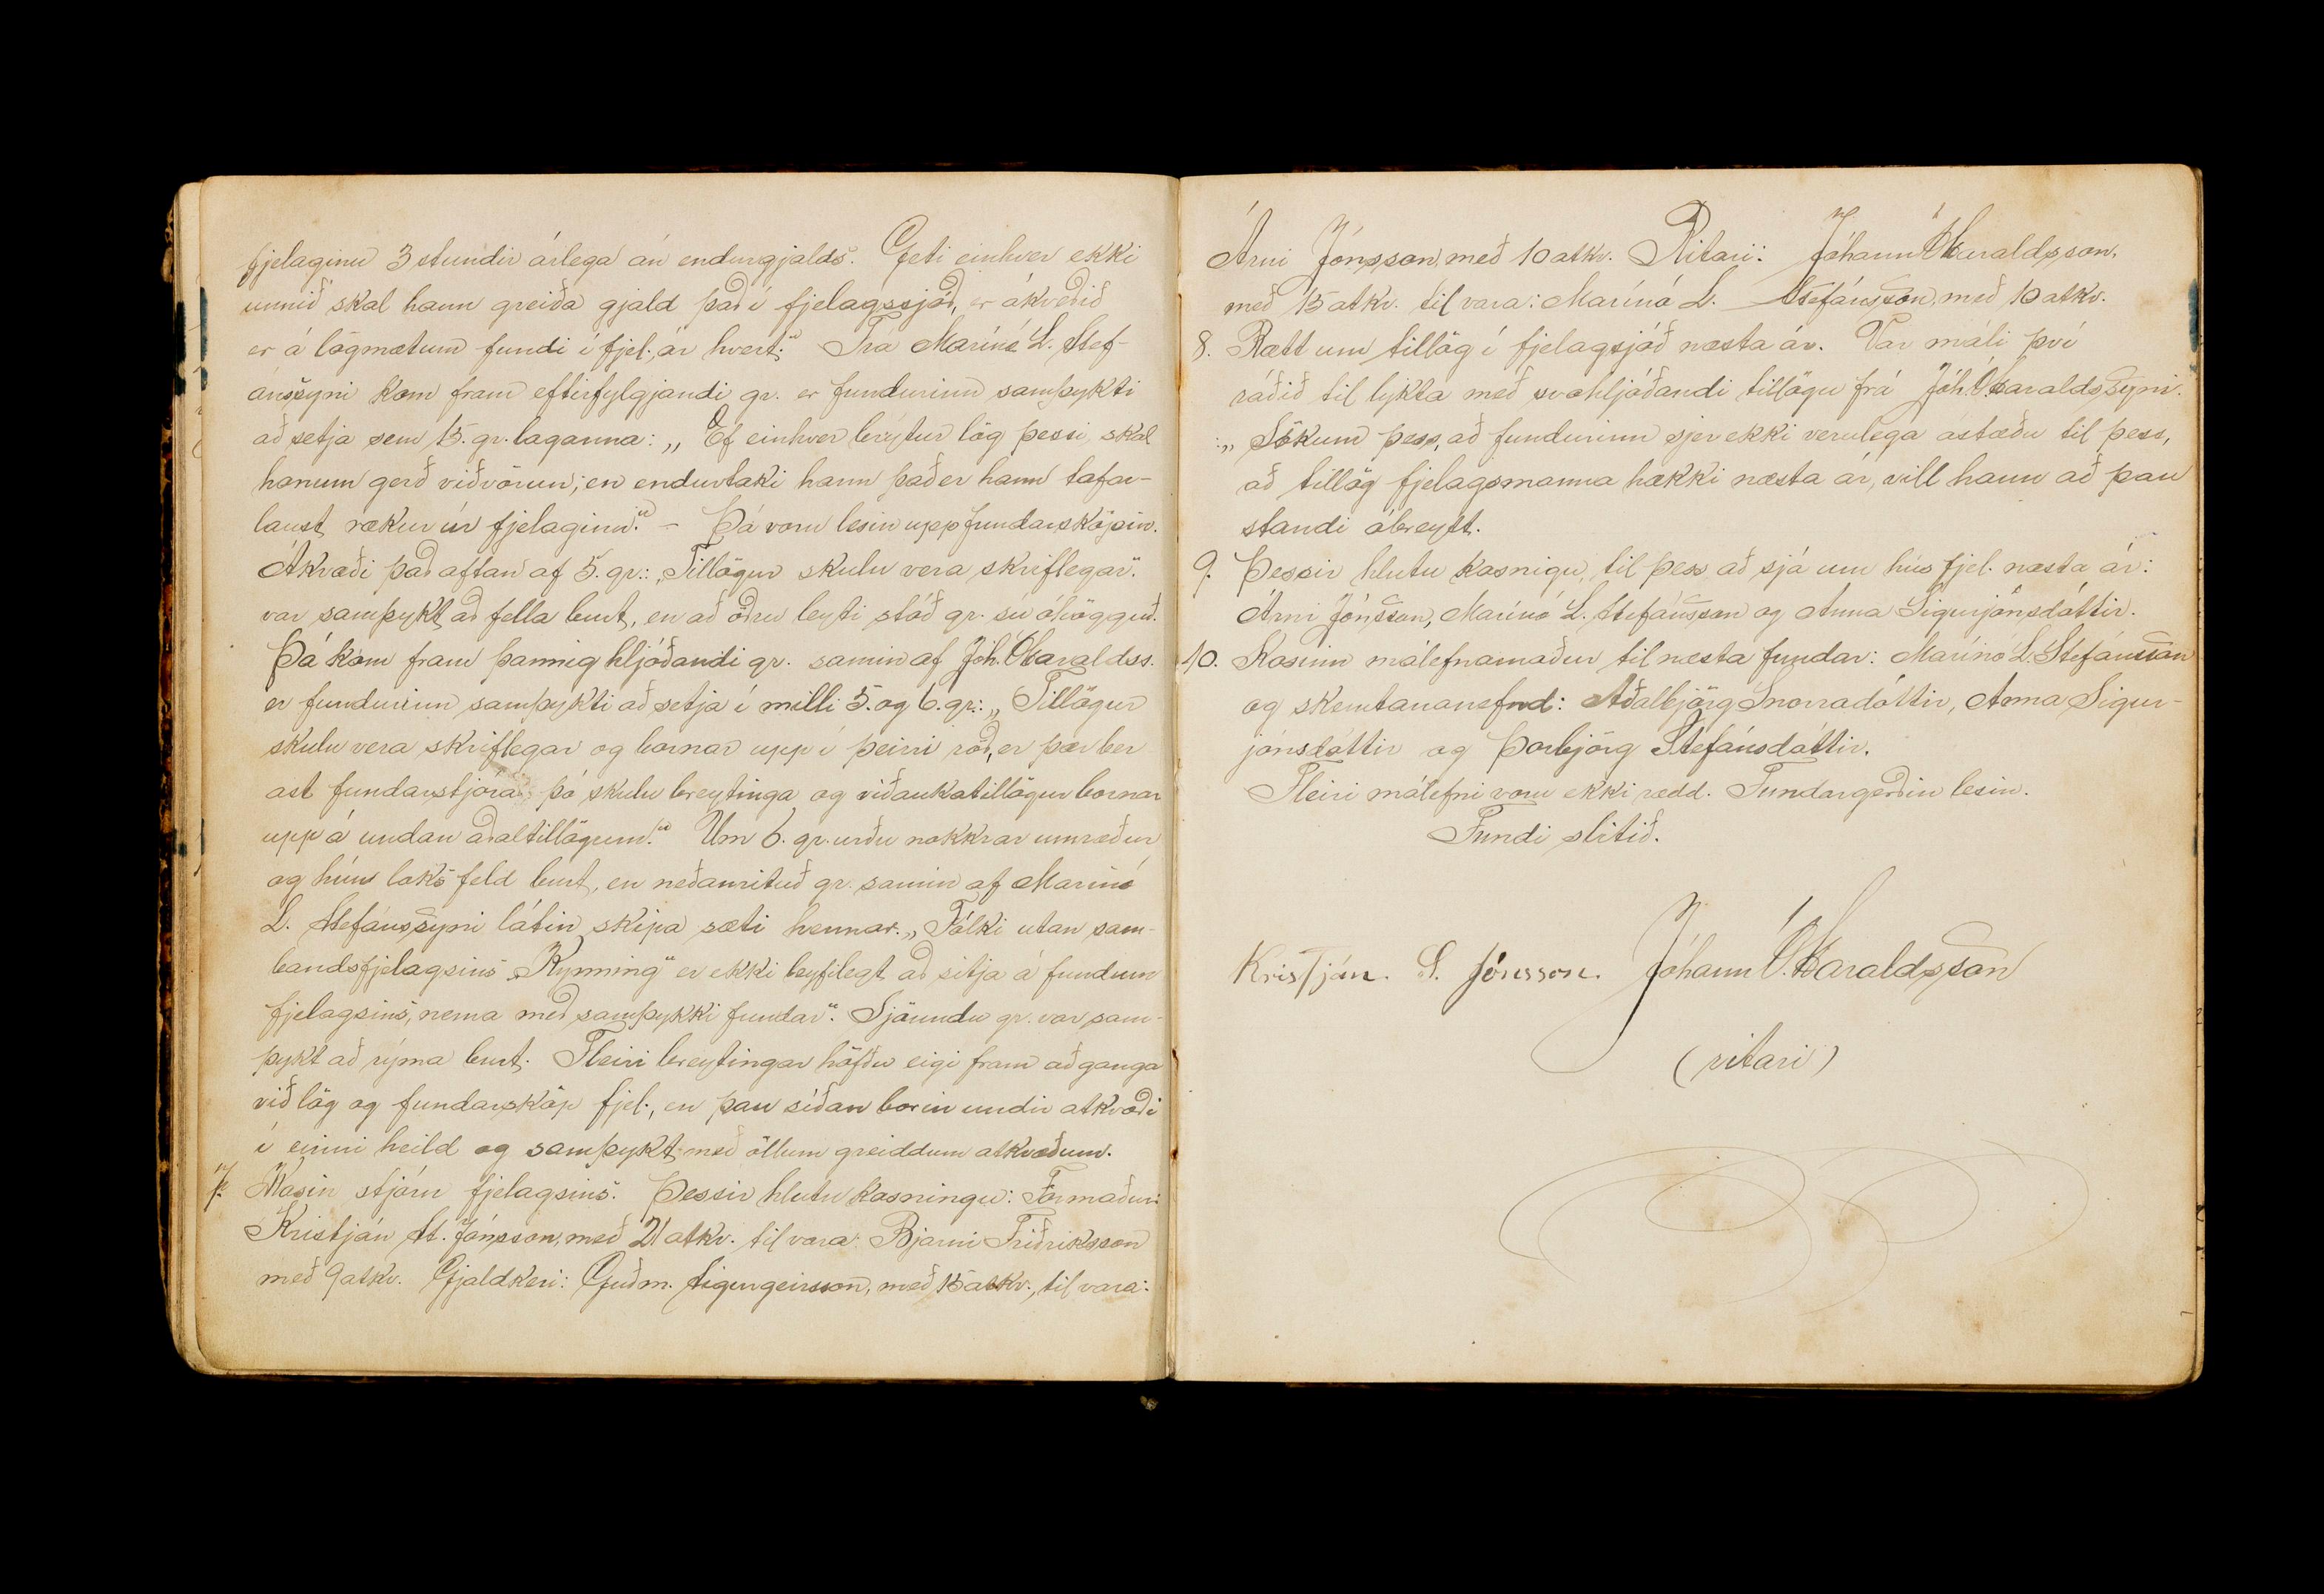 fjelaginu 3 stundir árlega án endurgjalds. Geti einhver ekki
unnið skal hann greiða gjald það í fjelagssjóð, er ákveðið
er á lögmætum fundi í fjel. ár hvert." Frá Marínó L. Stef-
ánssyni kom fram eftirfylgjandi gr. er fundurinn samþykti
að setja sem 15. gr. laganna: „Ef einhver brýtur lög þessi, skal
honum gerð viðvörun; en endurtaki hann það er hann tafar-
laust rækur úr fjelaginu." - Þá voru lesin upp fundarsköpin.
Ákvæði það aftan af 5. gr.: „Tillögur skulu vera skriflegar".
var samþykt að fella burt, en að öðru leyti stóð gr. sú óhögguð.
Þá kom fram þannig hljóðandi gr. samin af Jóh. Ó. Haraldss.
er fundurinn samþykti að setja í milli 5. og 6. gr.: „Tillögur
skulu vera skriflegar og bornar upp í þeirri röð, er þær ber
ast fundarstjóra; þó skulu breytinga og viðaukatillögur bornar
upp á undan aðaltillögum." Um 6. gr. urðu nokkrar umræður
og hún loks feld burt, en neðanrituð gr. samin af Marinó
L. Stefánssyni látin skipa sæti hennar: „Fólki utan sam-
bandsfjelagsins „Kynning" er ekki leyfilegt að sitja á fundum
fjelagsins, nema með samþykki fundar". Sjöundu gr. var sam-
þykt að rýma burt. Fleiri breytingar höfðu eigi fram að ganga
við lög og fundarsköp fjel., en þau síðan borin undir atkvæði
í einni heild og samþykt með öllum greiddum atkvæðum.
7. Kosin stjórn fjelagsins. Þessir hlutu kosningu: Formaður:
Kristján St. Jónsson, með 21 atkv. til vara: Bjarni Friðriksson
með 9 atkv. Gjaldkeri: Guðm. Sigurgeirsson, með 15 atkv., til vara:
Árni Jónsson, með 10 atkv. Ritari: Jóhann Ó. Haraldsson,
með 15 atkv. til vara: Marínó L. Stefánsson, með 10 atkv.
8. Rætt um tillög í fjelagsjóð næsta ár. Var máli því
ráðið til lykta með svohljóðandi tillögu frá Jóh. Ó. Haraldssyni.
:„Sökum þess, að fundurinn sjer ekki verulega ástæðu til þess,
að tillög fjelagsmanna hækki næsta ár, vill hann að þau
standi óbreytt.
9. Þessir hlutu kosnigu, til þess að sjá um hús fjel. næsta ár:
Árni Jónsson, Marínó L. Stefánsson og Anna Sigurjónsdóttir.
10. Kosinn málefnamaður til næsta fundar: Marínó L. Stefánsson
og skemtananefnd: Aðalbjörg Snorradóttir, Anna Sigur-
jónsdóttir og Þorbjörg Stefánsdóttir.
Fleiri málefni voru ekki rædd. Fundargerðin lesin.
Fundi slitið.
Kristján. S. Jónsson. Jóhann Ó. Haraldsson
(ritari)